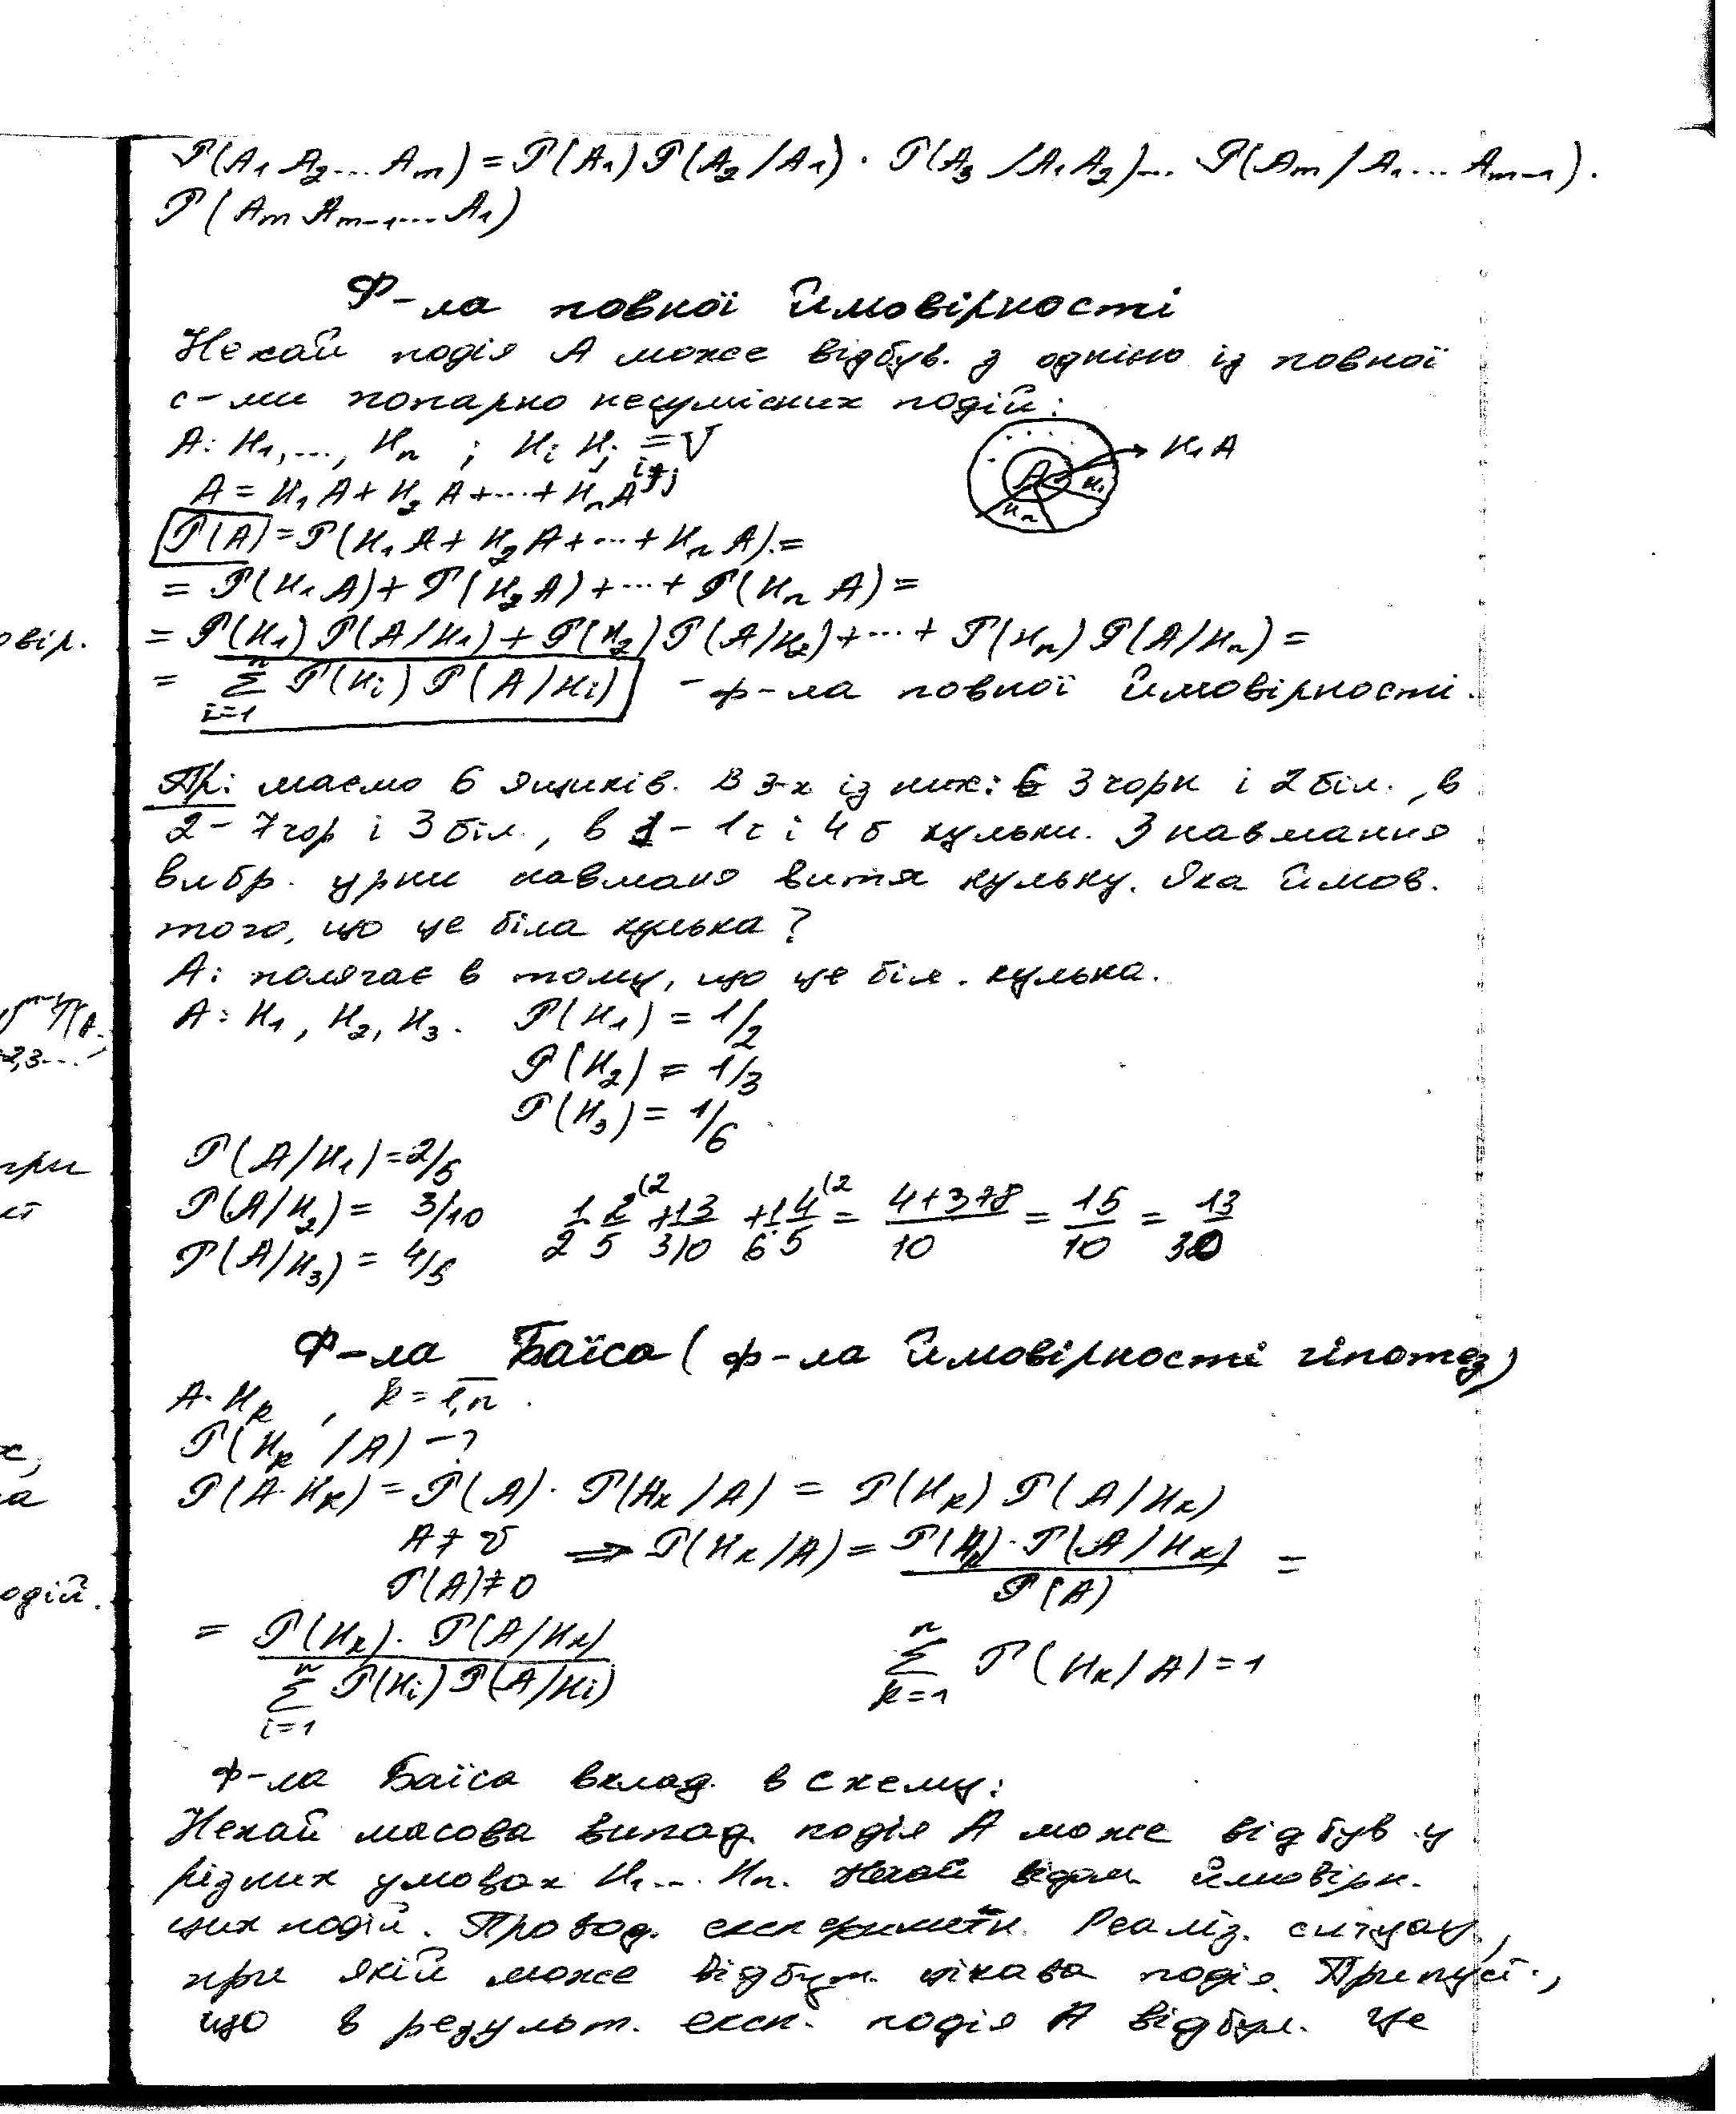 P(A₁ A₂ ... Aₘ) = P(A₁) P(A₂ / A₁) · P(A₃ / A₁ A₂)... P(Aₘ / A₁ ... Aₘ₋₁) .
P(Aₘ Aₘ₋₁ ... A₁)
Ф-ла повної ймовірності
Нехай подія A може відбув. з однією із повної
с-ми попарно несумісних подій:
A: H₁, ..., Hₙ ; Hᵢ Hⱼ = V
i≠j
H₁ A
A = H₁ A + H₂ A + ... + Hₙ A
Hᵢ
A
Hₙ
P(A) = P(H₁ A + H₂ A + ... + Hₙ A). =
= P(H₁ A) + P(H₂ A) + ... + P(Hₙ A) =
овір.
= P(H₁) P(A/H₁) + P(H₂) P(A/H₂) + ... + P(Hₙ) P(A/Hₙ) =
= ∑ᵢ₌₁ⁿ P(Hᵢ) P(A/Hᵢ) - ф-ла повної ймовірності.
Пр: маємо 6 ящиків. В 3-х із них: 3 чорн і 2 біл., в
2 - 7 чор і 3 біл., в 1 - 1ч і 4 б кульки. З навмання
вибр. урни навманя витя кульку. Яка ймов.
того, що це біла кулька?
A: полягає в тому, що це біл. кулька.
A: H₁, H₂, H₃. P(H₁) = 1/2
=2,3...
P(H₂) = 1/3
P(H₃) = 1/6
при
P(A/H₁) = 2/5
P(A/H₂) = 3/10
1/2 · 2/5 (2 + 1/3 · 3/10 + 1/6 · 4/5 (2 = (4+3+8)/10 = 15/10 = 13/30
P(A/H₃) = 4/5
Ф-ла Баїса ( ф-ла ймовірності гіпотез)
A·Hₖ , k = 1,n .
P(Hₖ / A) - ?
P(A·Hₖ) = P(A) · P(Hₖ/A) = P(Hₖ) P(A/Hₖ)
A ≠ V
P(A) ≠ 0
⇒ P(Hₖ/A) = P(Hₖ) · P(A/Hₖ) / P(A) =
одій.
= P(Hₖ) · P(A/Hₖ) / ∑ᵢ₌₁ⁿ P(Hᵢ) P(A/Hᵢ)
∑ₖ₌₁ⁿ P(Hₖ/A) = 1
Ф-ла Баїса вклад. в схему:
Нехай масова випад. подія A може відбув. у
різних умовах H₁ ... Hₙ. Нехай відом. ймовірн.
цих подій. Провод. Реаліз. ситуац.,
при якій може відбут. цікава подія. Припуст.,
що в результ. експ. подія A відбул. Це